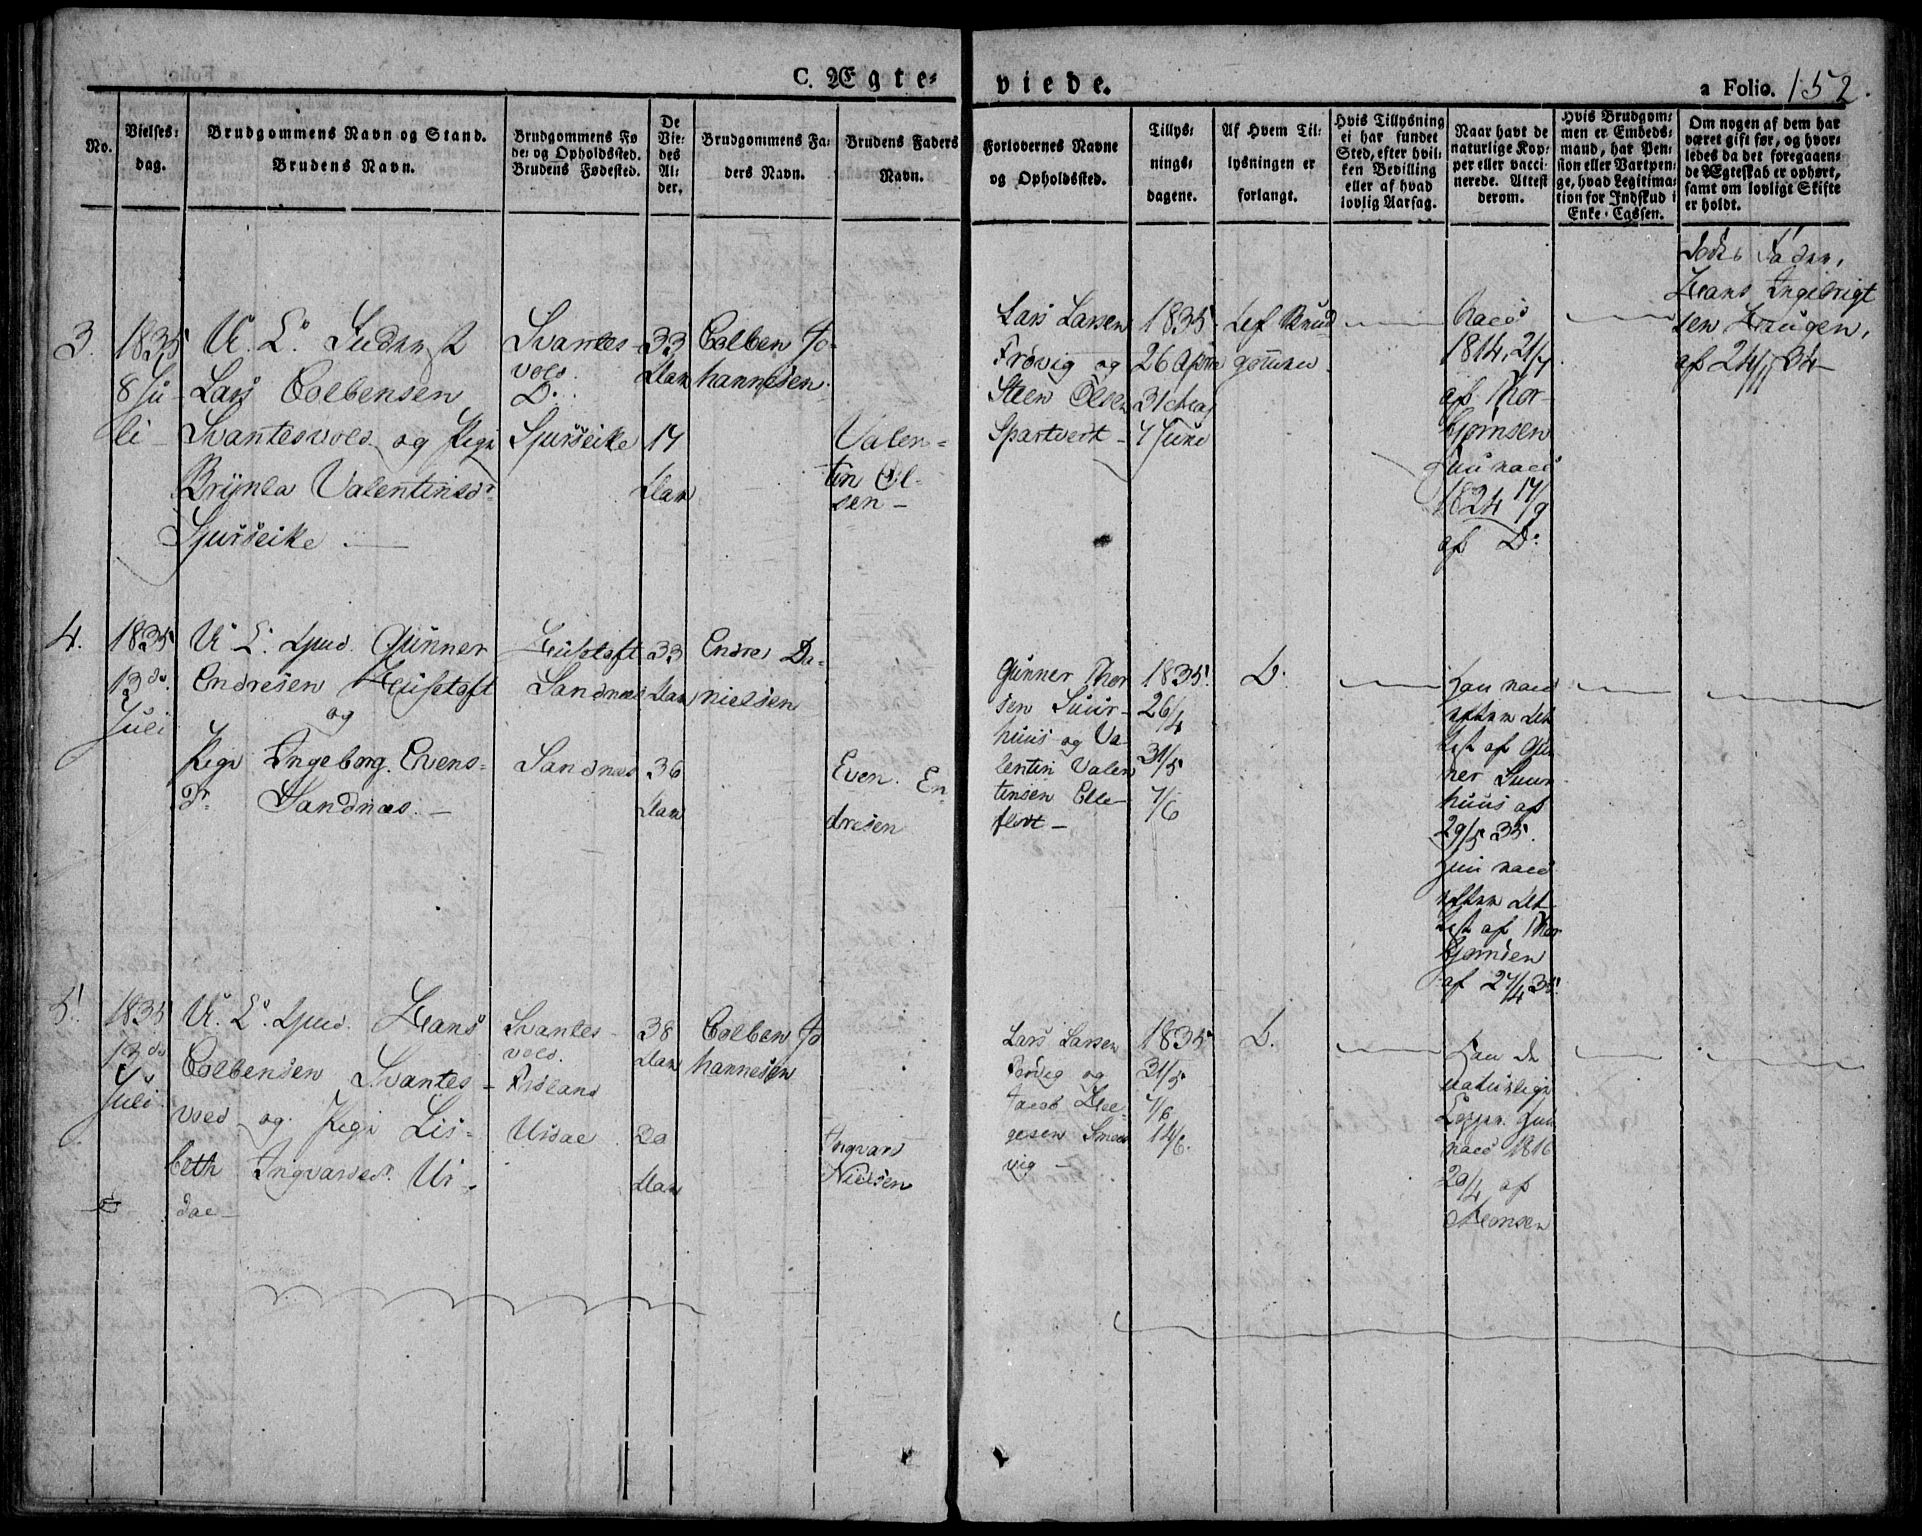 C. Ægte-
viede.
a Folio. 152.
No.
Vielses-
dag.
Brudgommens Navn og Stand.
Brudens Navn.
Brudgommens Fø
de- og Opholdssted.
Brudens Fødested.
De
Vie-
des
Al-
der.
Brudgommens Fa-
ders Navn.
Brudens Faders
Navn.
Forlovernes Navne
og Opholdssted.
Tillys-
nings-
dagene.
Af Hvem Til-
lysningen er
forlangt.
Hvis Tillysning
ei har fundet
Sted, efter hvil-
ken Bevilling
eller af hvad
lovlig Aarsag.
Naar havt de
naturlige Kop-
per eller vacci-
nerede. Attest
derom.
Hvis Brudgom-
men er Embeds-
mand, har Pen-
sion eller Vartpen-
ge, hvad Legitima-
tion for Indskud i
Enke-Cassen.
Om nogen af dem har
været gift før, og hvor-
ledes da det foregaaen-
de Ægteskab er ophørt,
samt om lovligt Skifte
er holdt.
Fader,
Hans Ingebrigt
sen Haugen,
af 24/11 34
3.
1835
8 Ju-
li
U. C.
Lars Colbensen
Svantesvold og Pige
Brynla Valentinsd.
Sjurseike
Svantes-
vold.
D.
Sjurseike
33
Aar
17
Aar
Colben Jo-
hannesen.
Valen-
tin Ol-
sen
Lars Larsen
Frøvig og
Steen Olsen
Spartveit
1835
26 April
31 Maj
7 Juni
vacc
1814, 21/7
af Thor-
bjørnsen
vacc
1824 17/9
af D.
4.
1835
13de
Juli
U. C. Gunner
Endresen Husetoft
og
Pige Ingeborg Evens-
dr. Sandnæs.
Husetoft
Sandnæs
Sandnæs
33
Aar
36
Aar
Endre Da-
nielsen
Even En-
dresen
Gunner Thor
sen Suur-
huus og Va-
lentin Valen
tinsen Elle-
flodt
1835.
26/4
31/5
7/6
D.
Han vacc
af Gun
ner Suur
huus af
29/5 35.
Hun vacc
af Thor
bjørnsen
af 27/4 35.
5.
1835
13de
Juli
U. C. Hans
Colbensen Svantes-
vold og Pige Lis-
beth Ingvarsd. Ur-
dae
Svantes-
vold.
Urdae
38
Aar
20
Aar
Colben Jo
hannesen
Ingvard
Nielsen
Lars Larsen
Frøvig og
Jacob Hel-
gesen Smed
vig
1835
31/5
7/6
14/6.
D.
Han de
naturlige
Kopper. Hun
vacc 1816
20/4 af
Monsen